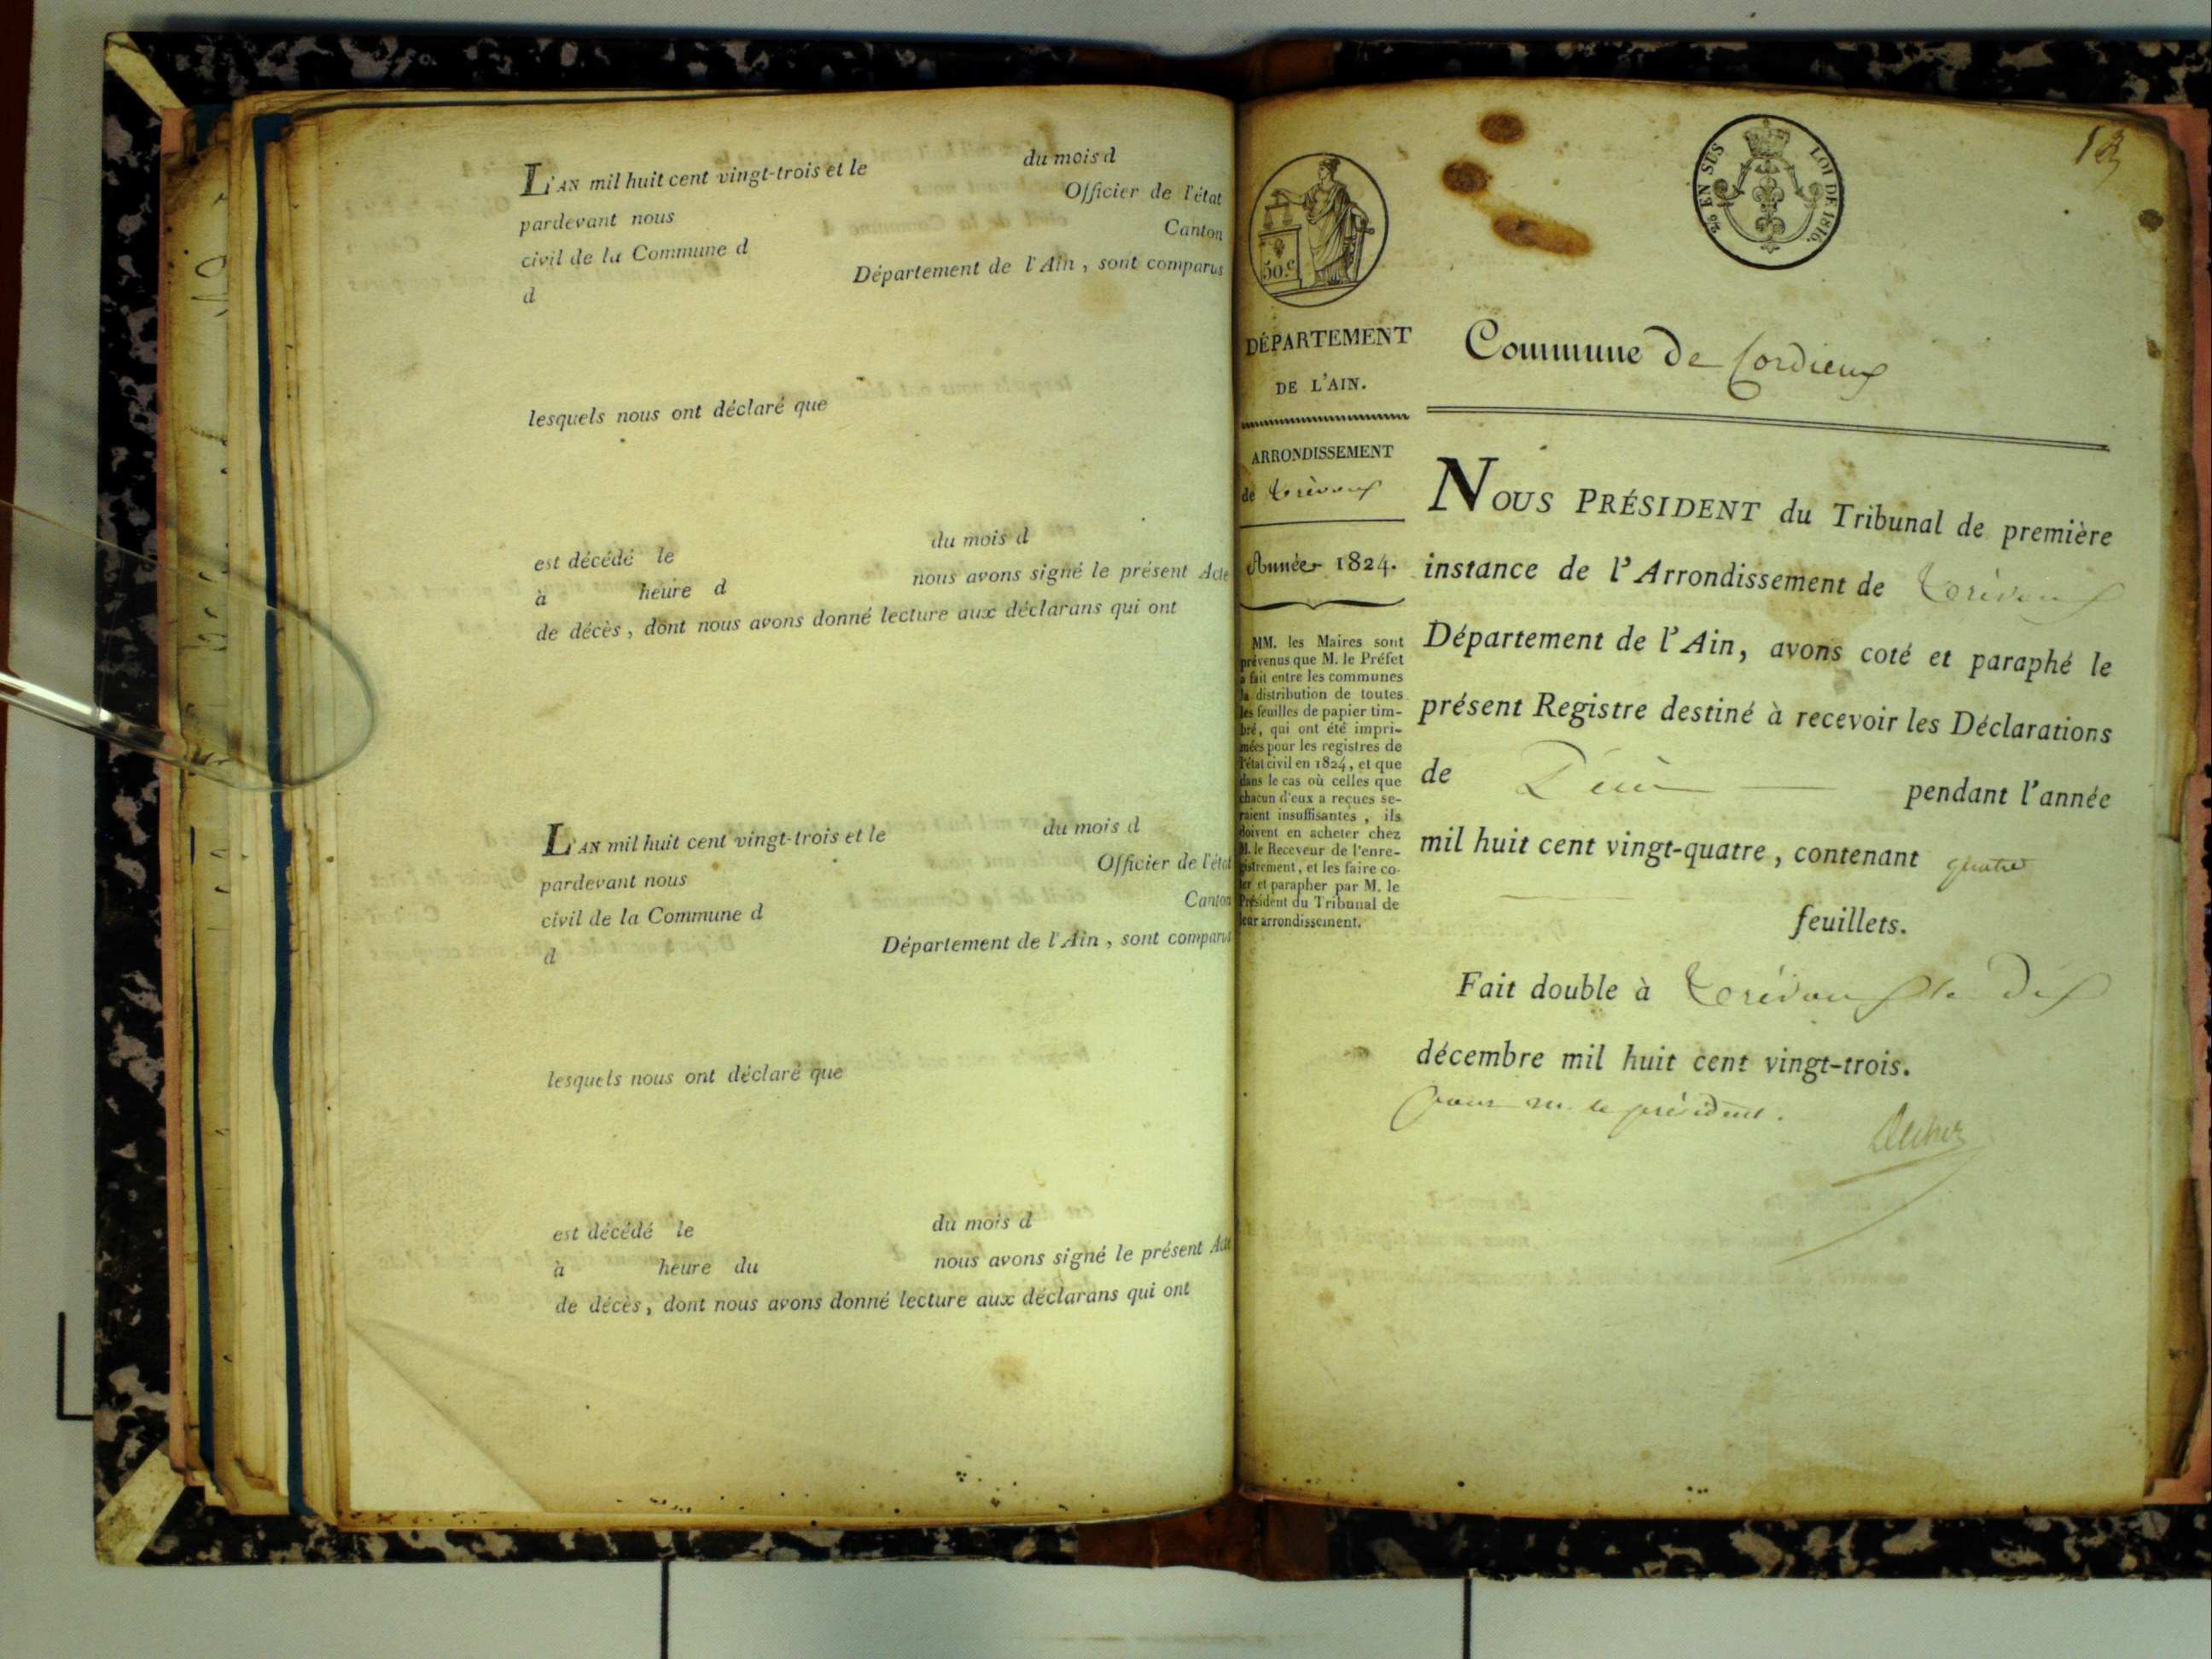 L'AN mil huit cent vingt-trois et le du mois d
pardevant nous Officier de l'état
civil de la Commune d Canton
d Département de l'Ain, sont comparus
lesquels nous ont déclaré que
est décédé le du mois d
à heure d nous avons signé le présent Acte
de décès, dont nous avons donné lecture aux déclarans qui ont
L'AN mil huit cent vingt-trois et le du mois d
pardevant nous Officier de l'état
civil de la Commune d Canton
d Département de l'Ain, sont comparus
lesquels nous ont déclaré que
est décédé le du mois d
à heure du nous avons signé le présent Acte
de décès, dont nous avons donné lecture aux déclarans qui ont
50.c
EN SUS LOI DE 1816.
DÉPARTEMENT
DE L'AIN.
ARRONDISSEMENT
de Trévoux
Année 1824.
MM. les Maires sont
prévenus que M. le Préfet
a fait entre les communes
la distribution de toutes
les feuilles de papier tim-
bré, qui ont été impri-
mées pour les registres de
l'état civil en 1824, et que
dans le cas où celles que
chacun d'eux a reçues se-
raient insuffisantes, ils
doivent en acheter chez
M. le Receveur de l'enre-
gistrement, et les faire co-
ter et parapher par M. le
Président du Tribunal de
leur arrondissement.
Commune de Cordieux
NOUS PRÉSIDENT du Tribunal de première
instance de l'Arrondissement de Trévoux
Département de l'Ain, avons coté et paraphé le
présent Registre destiné à recevoir les Déclarations
de pendant l'année
mil huit cent vingt-quatre, contenant quatre
feuillets.
Fait double à Trévoux le dix
décembre mil huit cent vingt-trois.
pour m. le président.